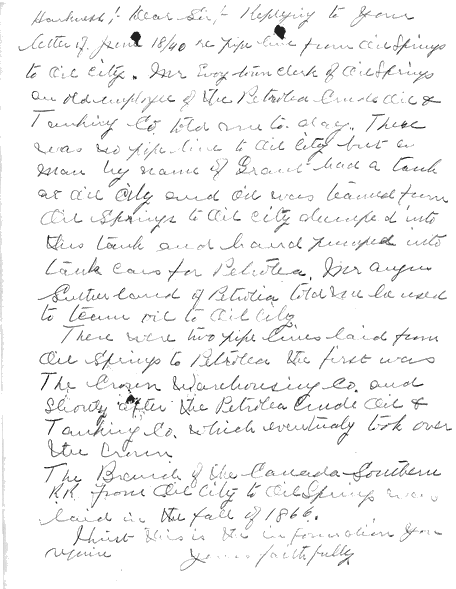 Harkness;- Dear Sir;- Replying to your
letter of June 18/40 re pipe line from Oil Springs
to Oil City. Mr town clerk of Oil Springs
an old employee of the Petrolea Crude Oil &
Tanking Co. told me to-day. There
was no pipe line to Oil City but a
man by name of Grant had a tank
at Oil City and oil was teamed from
Oil Springs to Oil City dumped into
this tank and hand pumped into
tank cars for Petrolea. Mr Angus
Sutherland of Petrolia told me he used
to team oil to Oil City
There were two pipe lines laid from
Oil Springs to Petrolea the first was
The Crown Warehousing Co. and
shortly after the Petrolea Crude Oil &
Tanking Co. which eventualy took over
the Crown
The Branch of the Canada Southern
RR. from Oil City to Oil Springs was
laid in the fall of 1866.
Trust this is the information you
require yours faithfully